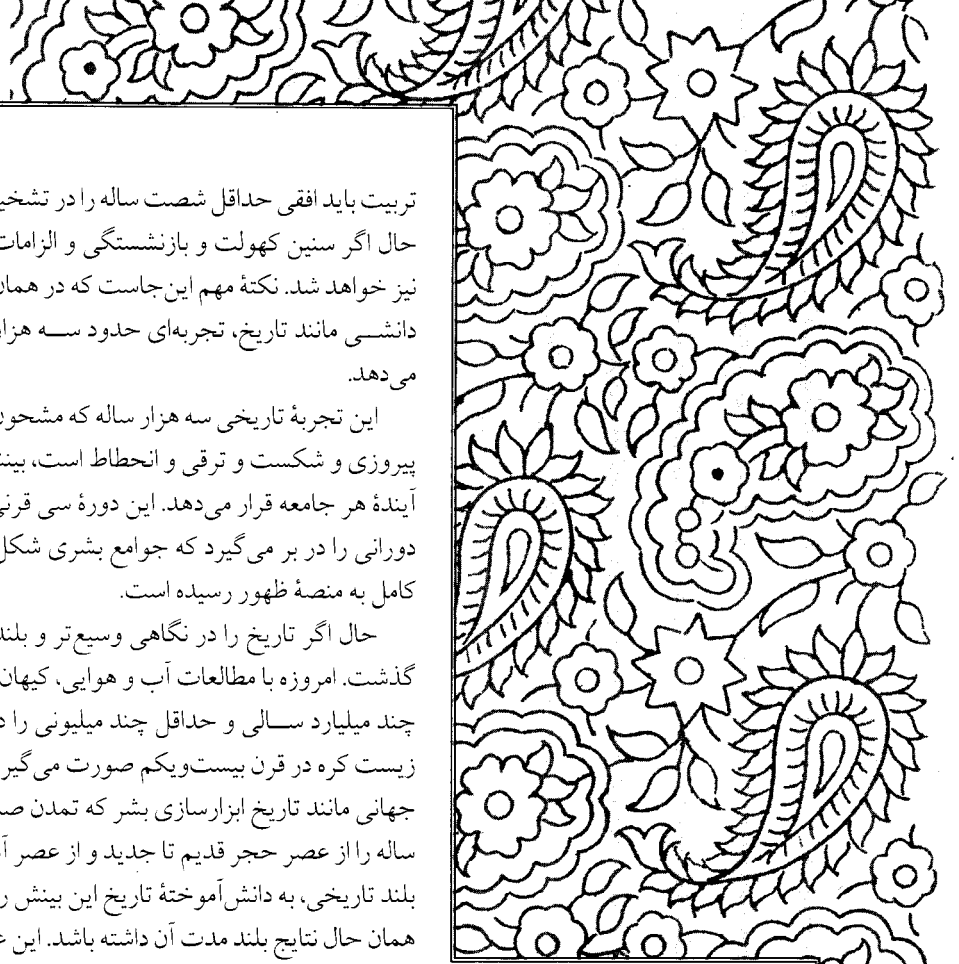 تربیت باید افقی حداقل شصت ساله را در
حال اگر سنین کهولت و بازنشستگی و الزامات
نیز خواهد شد. نکتهٔ مهم این‌جاست که در همان
دانشـــی مانند تاریخ، تجربه‌ای حدود ســـه
می‌دهد.
این تجربهٔ تاریخی سه هزار ساله که مشحون
پیروزی و شکست و ترقی و انحطاط است،
آیندهٔ هر جامعه قرار می‌دهد. این دورهٔ سی
دورانی را در بر می‌گیرد که جوامع بشری شکل
کامل به منصهٔ ظهور رسیده است.
حال اگر تاریخ را در نگاهی وسیع‌تر و بلند
گذشت. امروزه با مطالعات آب و هوایی، کیهان
چند میلیارد ســـالی و حداقل چند میلیونی را
زیست کره در قرن بیست‌ویکم صورت
جهانی مانند تاریخ ابزارسازی بشر که تمدن
ساله را از عصر حجر قدیم تا جدید و از عصر
بلند تاریخی، به دانش‌آموختهٔ تاریخ این بینش
همان حال نتایج بلند مدت آن داشته باشد. این